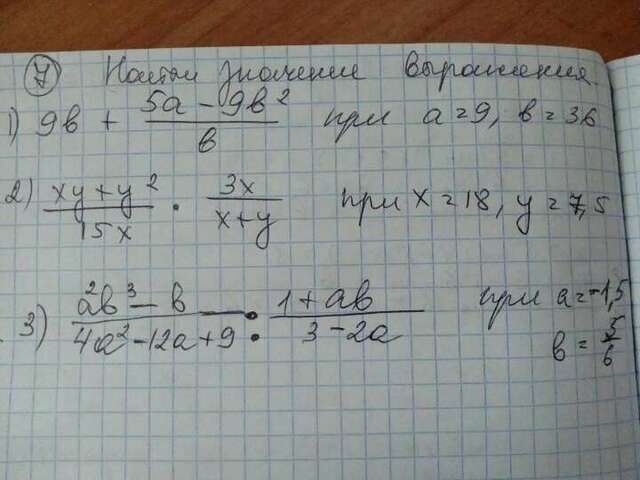 ⑦ Найти значение выражения.
1) 9в + (5а - 9в²)/в при а = 9, в = 36
2) (xy + y²)/(15x) · (3x)/(x+y) при x = 18, y = 7,5
3) (а²в³ - в)/(4а² - 12а + 9) : (1 + ав)/(3 - 2а) при а = -1,5
в = 5/6